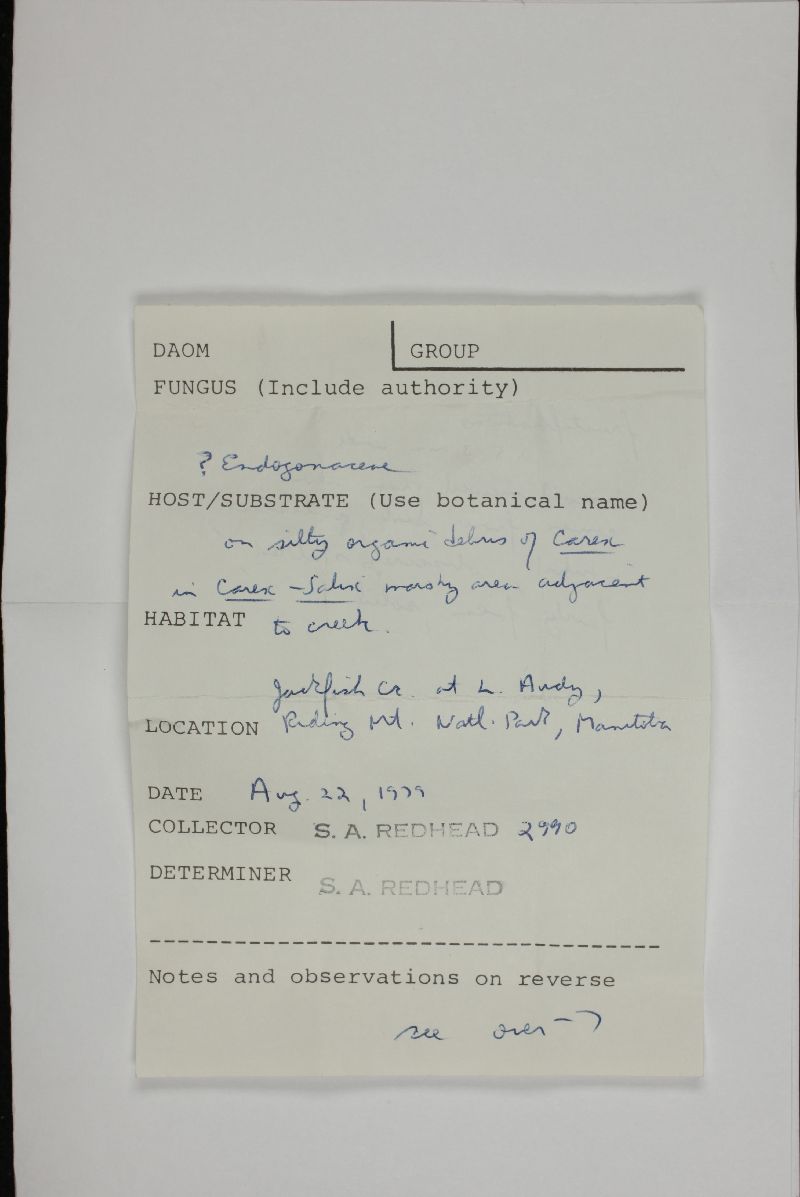 DAOM GROUP
FUNGUS (Include authority)
? Endogonaceae
HOST/SUBSTRATE (Use botanical name)
on silty organi debris of Carex
in Carex - Salix marshy area adjacent
HABITAT to creek.
Jackfish Cr. at L. Audy,
LOCATION Riding Mt. Natl. Park, Manitoba
DATE Aug. 22, 1979
COLLECTOR S. A. REDHEAD 2990
DETERMINER S. A. REDHEAD
Notes and observations on reverse
see over →